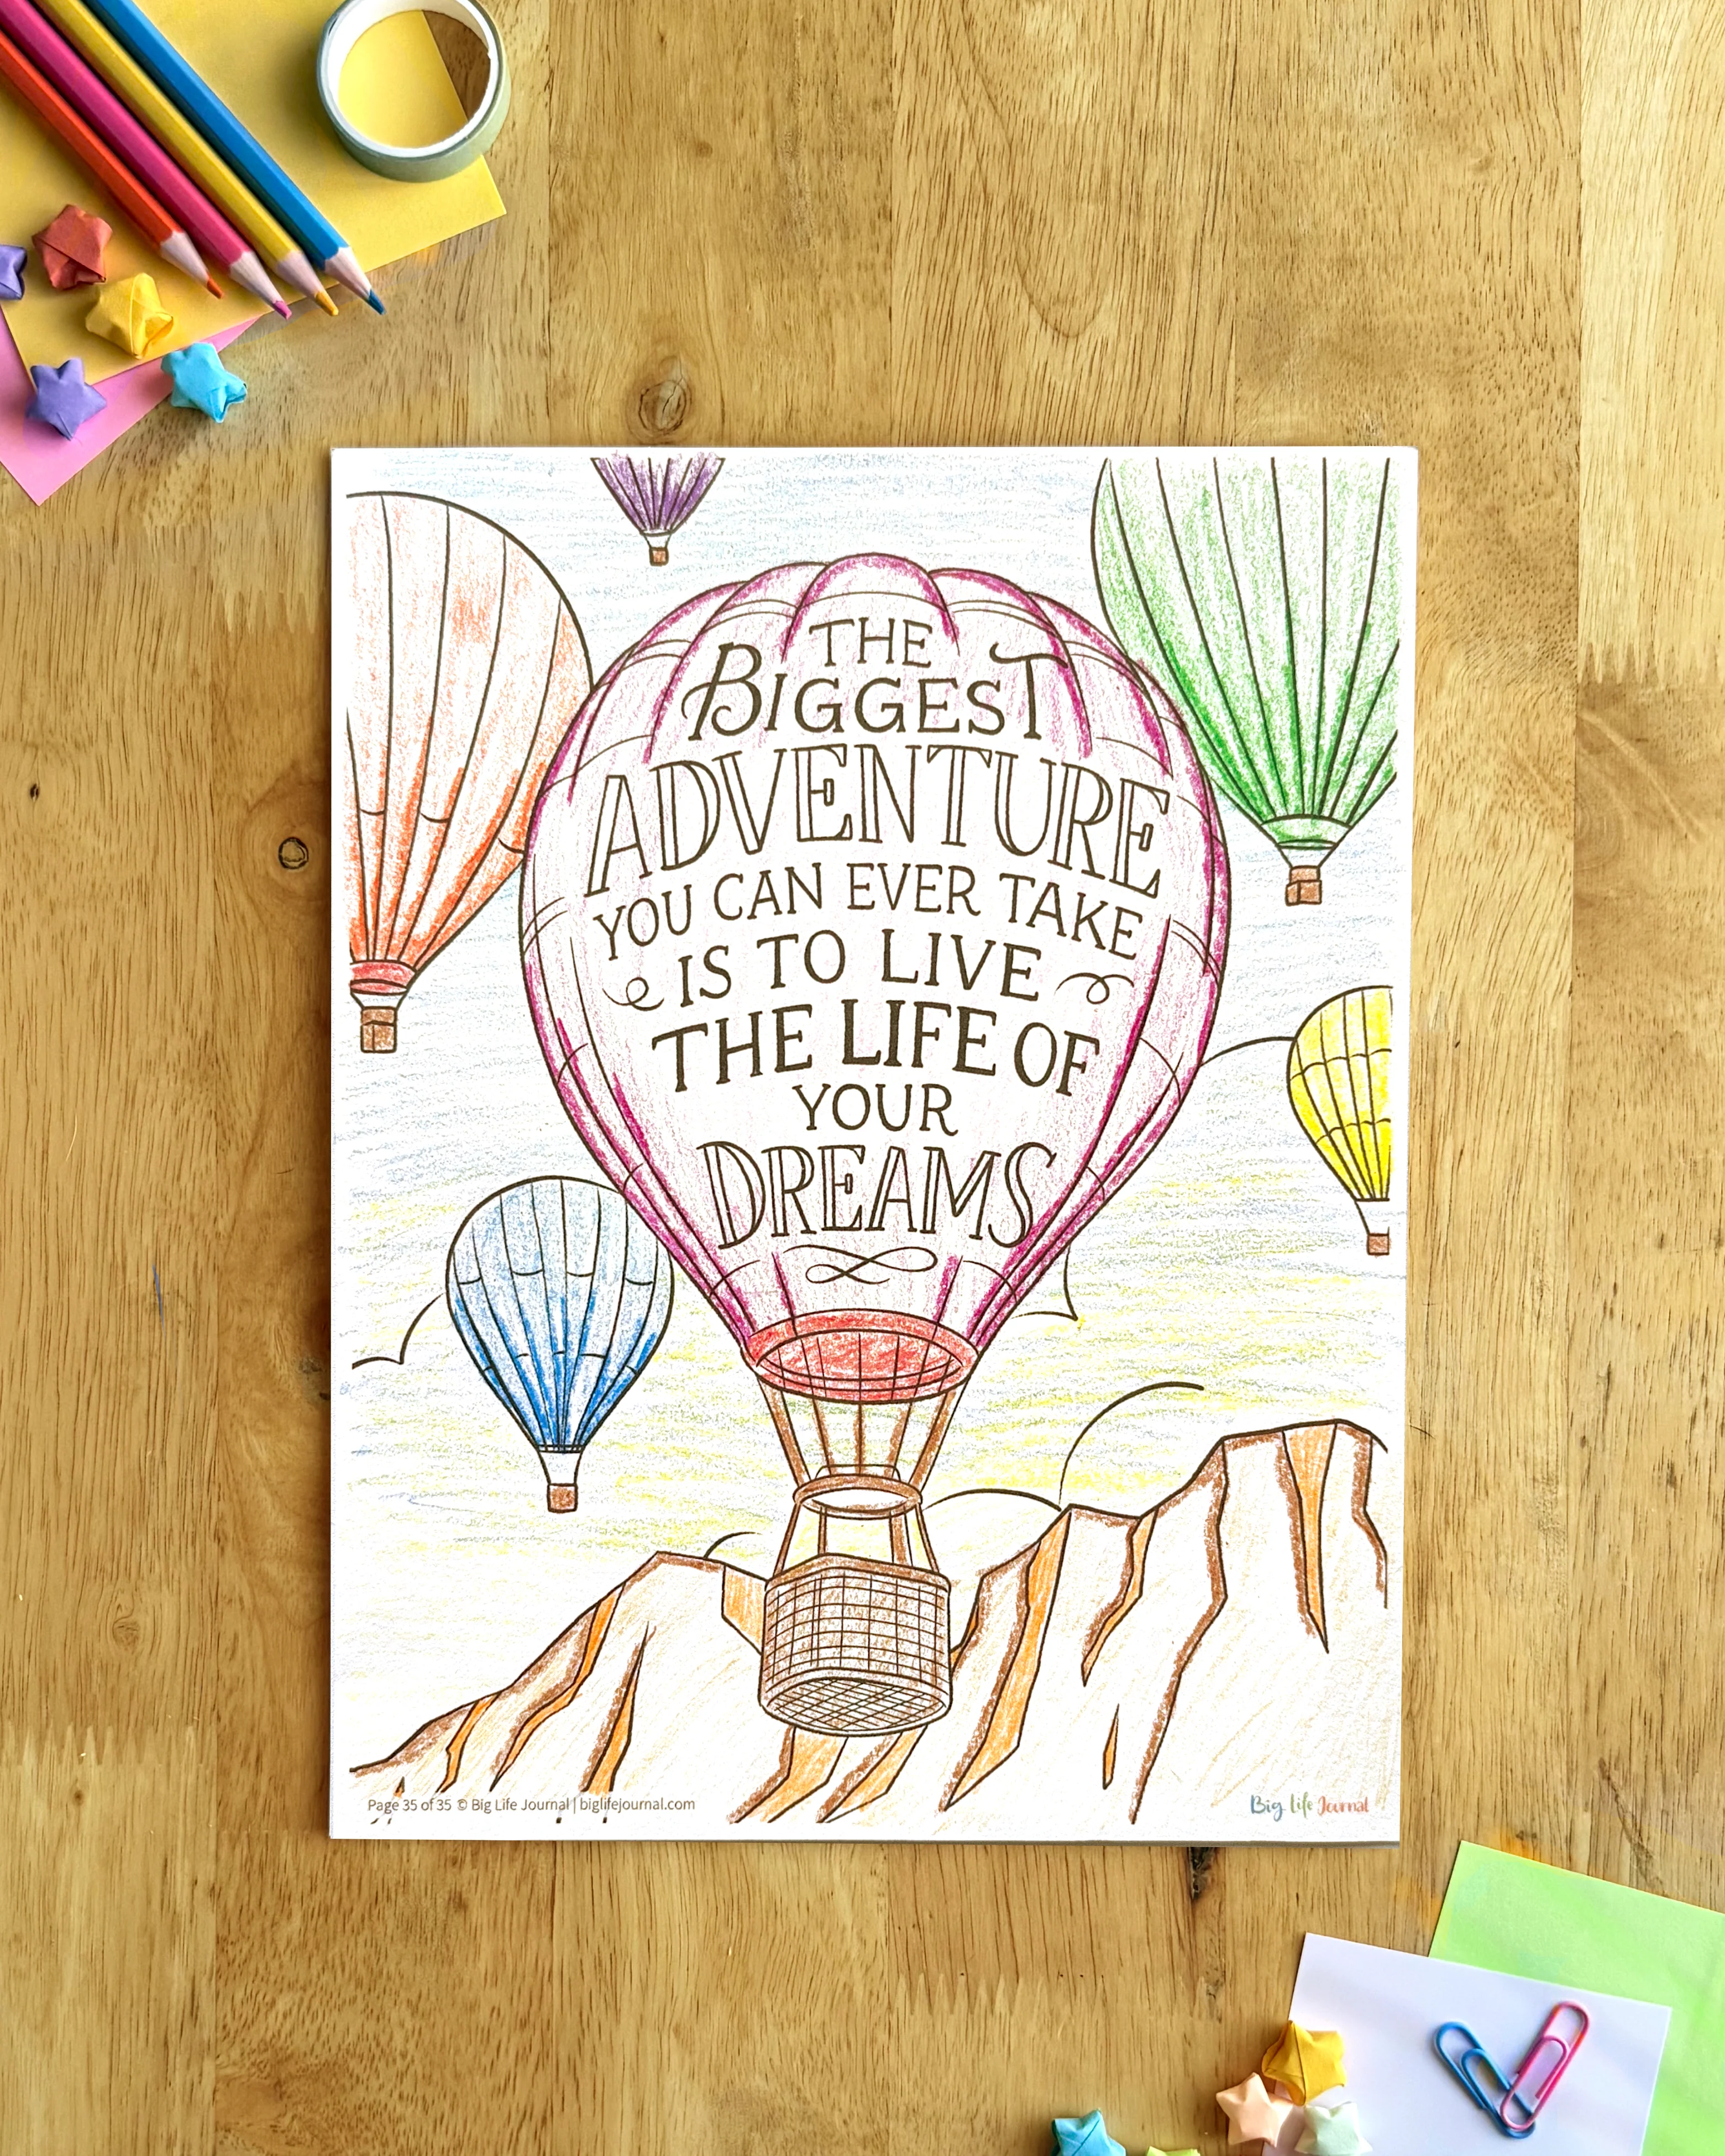 THE
BIGGEST
ADVENTURE
YOU CAN EVER TAKE
IS TO LIVE
THE LIFE OF
YOUR
DREAMS
Page 35 of 35 © Big Life Journal | biglifejournal.com
Big Life Journal